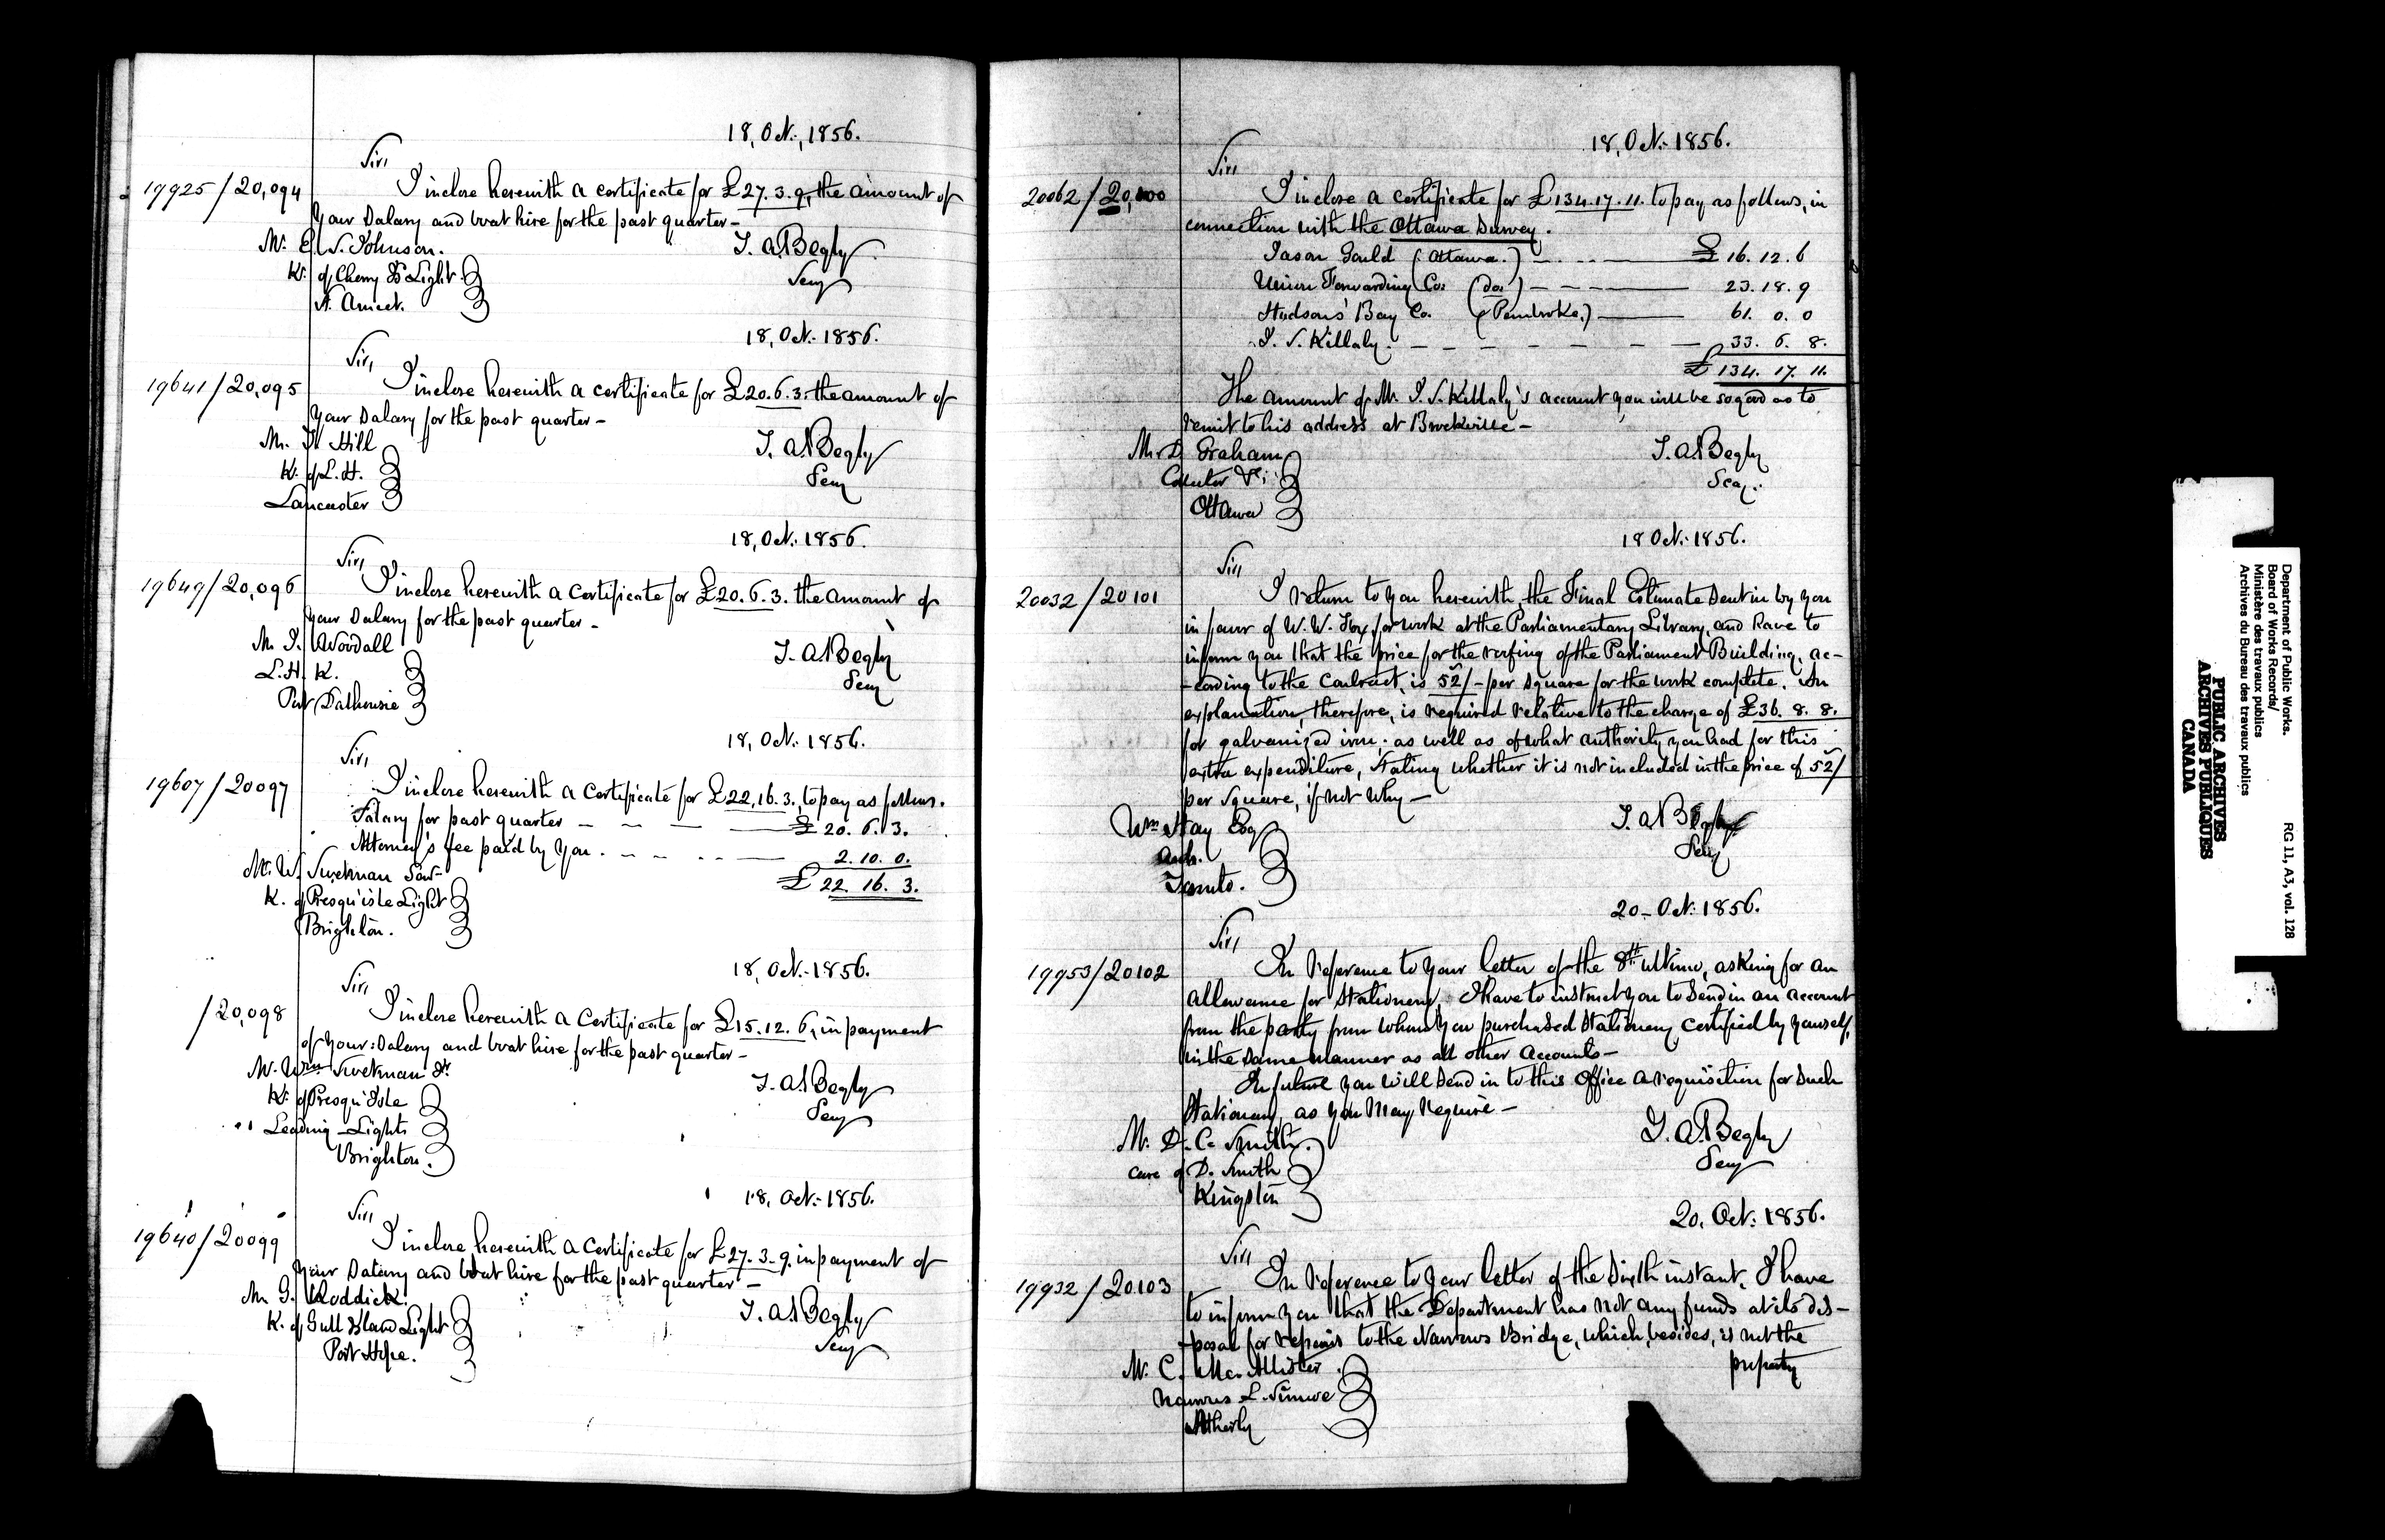 18, Oct:, 1856.
Sir,
19925 / 20,094
I inclose herewith a certificate for £27. 3. 9, the amount of
your Salary and boat hire for the past quarter –
Mr. E. S. Johnson.
K. of Cherry Id Light
T. A. Begly
Secy
18, Oct:- 1856.
Sir,
19641 / 20,095
I inclose herewith a certificate for £20. 6. 3. the amount of
your Salary for the past quarter –
Mr. Hill
K. of L. H.
Lancaster
T. A. Begly
Secy
18, Oct:- 1856.
Sir,
19649 / 20,096
I inclose herewith a Certificate for £20. 6. 3. the amount of
your Salary for the past quarter –
Mr. J. Woodall
L. H. K.
Port Dalhousie
T. A. Begly
Secy
18, Oct:- 1856.
Sir,
19607 / 20097
I inclose herewith a Certificate for £22, 16. 3., to pay as follows.
Salary for past quarter – – – £ 20. 6. 3.
Attorney's fee paid by you . – – 2. 10. 0.
£ 22. 16. 3.
Mr. W. Swetman Senr
K. of Presqu'isle Light
Brighton.
18, Oct:- 1856.
Sir,
/ 20,098
I inclose herewith a Certificate for £15. 12. 6, in payment
of your Salary and boat hire for the past quarter –
Mr. Wm Swetman Jr
K. of Presqu'Isle
Leading – Lights
Brighton.
T. A. Begly
Secy
18, Oct:- 1856.
Sir,
19640 / 20099
I inclose herewith a Certificate for £27. 3. 9. in payment of
your Salary and boat hire for the past quarter –
Mr. G. Roddick.
K. of Gull Island Light
Port Hope.
T. A. Begly
Secy
18, Oct:- 1856.
Sir,
20062 / 20,100
I inclose a certificate for £134. 17. 11. to pay as follows, in
connection with the Ottawa Survey.
Jason Gould (Ottawa.) – – – £ 16. 12. 6
Union Forwarding Co: (do:) – – – 23. 18. 9
Hudsons' Bay Co. (Pembroke,) – 61. 0. 0
J. S. Killaly. – – – – – – – 33. 6. 8.
£ 134. 17. 11.
The amount of Mr J. S. Killaly's account you will be so good as to
remit to his address at Brockville –
Mr. D. Graham
Collector &c:
Ottawa
T. A. Begly
Secy.
18 Oct:- 1856.
Sir,
20032 / 20101
I return to you herewith, the Final Estimate sent in by you
in favor of W. W. Fox, for work at the Parliamentary Library, and have to
inform you that the price for the roofing of the Parliament Building, ac–
–cording to the Contract, is 52/– per square for the work complete. An
explanation, therefore, is required relative to the charge of £36. 8. 8.
for galvanized iron; as well as of what authority you had for this
extra expenditure, stating whether it is not included in the price of 52/
per square, if not why –
Wm Hay Esq
Arch.
Toronto.
T. A. Begly
Secy
20 – Oct: 1856.
Sir,
19953 / 20102
In reference to your letter of the 8th ultimo, asking for an
allowance for Stationery, I have to instruct you to send in an account
from the party from whom you purchased Stationery, certified by yourself,
in the same manner as all other accounts –
In future you will send in to this Office a requisition for such
Stationery, as you may require –
Mr. D. C. Smith.
care of D. Smith
Kingston
T. A. Begly
Secy
20. Oct: 1856.
Sir,
19932 / 20103
In reference to your letter of the sixth instant, I have
to inform you that the Department has not any funds at its dis–
–posal for repairs to the Narrows Bridge, which, besides, is not the
property
Mr. C. McAllister.
Narrows L. Simcoe
Atherly
Department of Public Works.
Board of Works Records/
Ministère des travaux publics
Archives du Bureau des travaux publics
RG 11, A3, vol. 128
PUBLIC ARCHIVES
ARCHIVES PUBLIQUES
CANADA